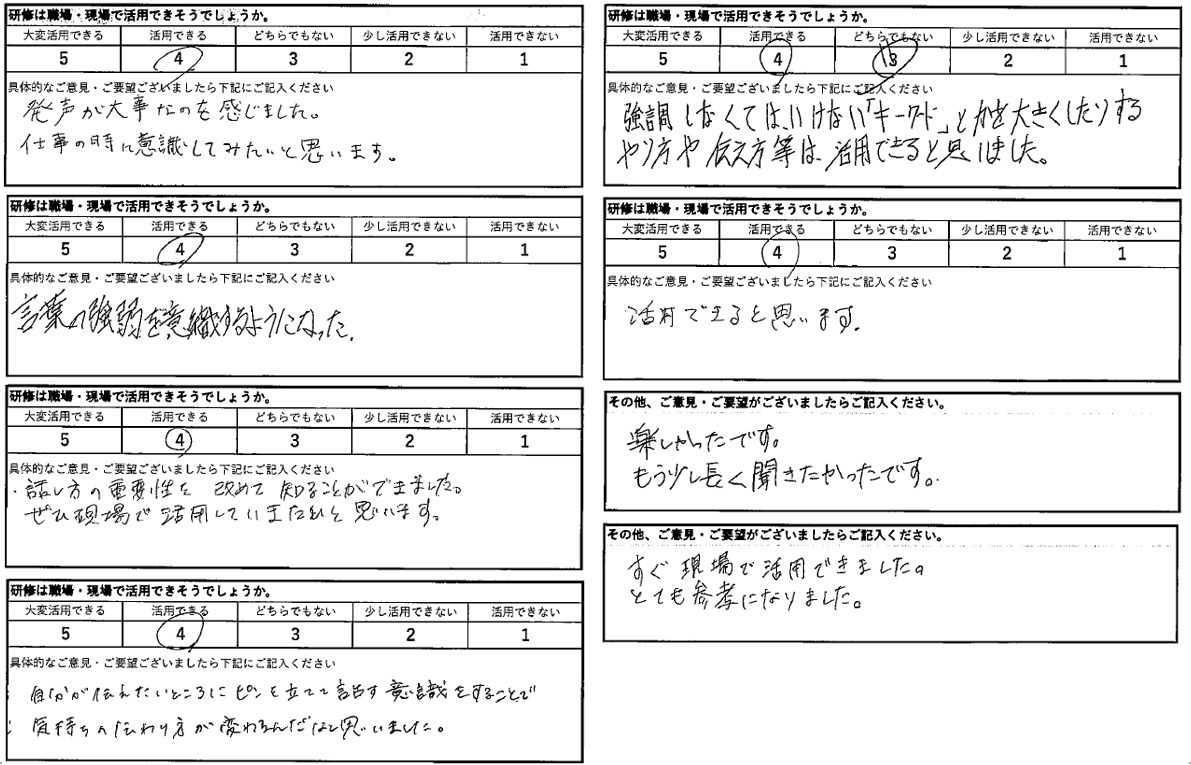 研修は職場・現場で活用できそうでしょうか。
大変活用できる 活用できる どちらでもない 少し活用できない 活用できない
5 4 3 2 1
具体的なご意見・ご要望ございましたら下記にご記入ください
発声が大事なのを感じました。
仕事の時に意識してみたいと思います。
研修は職場・現場で活用できそうでしょうか。
大変活用できる 活用できる どちらでもない 少し活用できない 活用できない
5 4 3 2 1
具体的なご意見・ご要望ございましたら下記にご記入ください
言葉の強弱を意識するようになった.
研修は職場・現場で活用できそうでしょうか。
大変活用できる 活用できる どちらでもない 少し活用できない 活用できない
5 4 3 2 1
具体的なご意見・ご要望ございましたら下記にご記入ください
・話し方の重要性を 改めて 知ることができました。
ぜひ現場で活用していきたいと思います。
研修は職場・現場で活用できそうでしょうか。
大変活用できる 活用できる どちらでもない 少し活用できない 活用できない
5 4 3 2 1
具体的なご意見・ご要望ございましたら下記にご記入ください
自分が伝えたいところにピンを立てて話す意識をすることで
気持ちの伝わり方が変わるんだなと思いました。
研修は職場・現場で活用できそうでしょうか。
大変活用できる 活用できる どちらでもない 少し活用できない 活用できない
5 4 3 2 1
具体的なご意見・ご要望ございましたら下記にご記入ください
強調しなくてはいけない「キーワード」とかを大きくしたりする
やり方や伝え方等は、活用できると思いました。
研修は職場・現場で活用できそうでしょうか。
大変活用できる 活用できる どちらでもない 少し活用できない 活用できない
5 4 3 2 1
具体的なご意見・ご要望ございましたら下記にご記入ください
活用できると思います.
その他、ご意見・ご要望がございましたらご記入ください。
楽しかったです。
もう少し長く聞きたかったです。
その他、ご意見・ご要望がございましたらご記入ください。
すぐ現場で活用できました。
とても参考になりました。